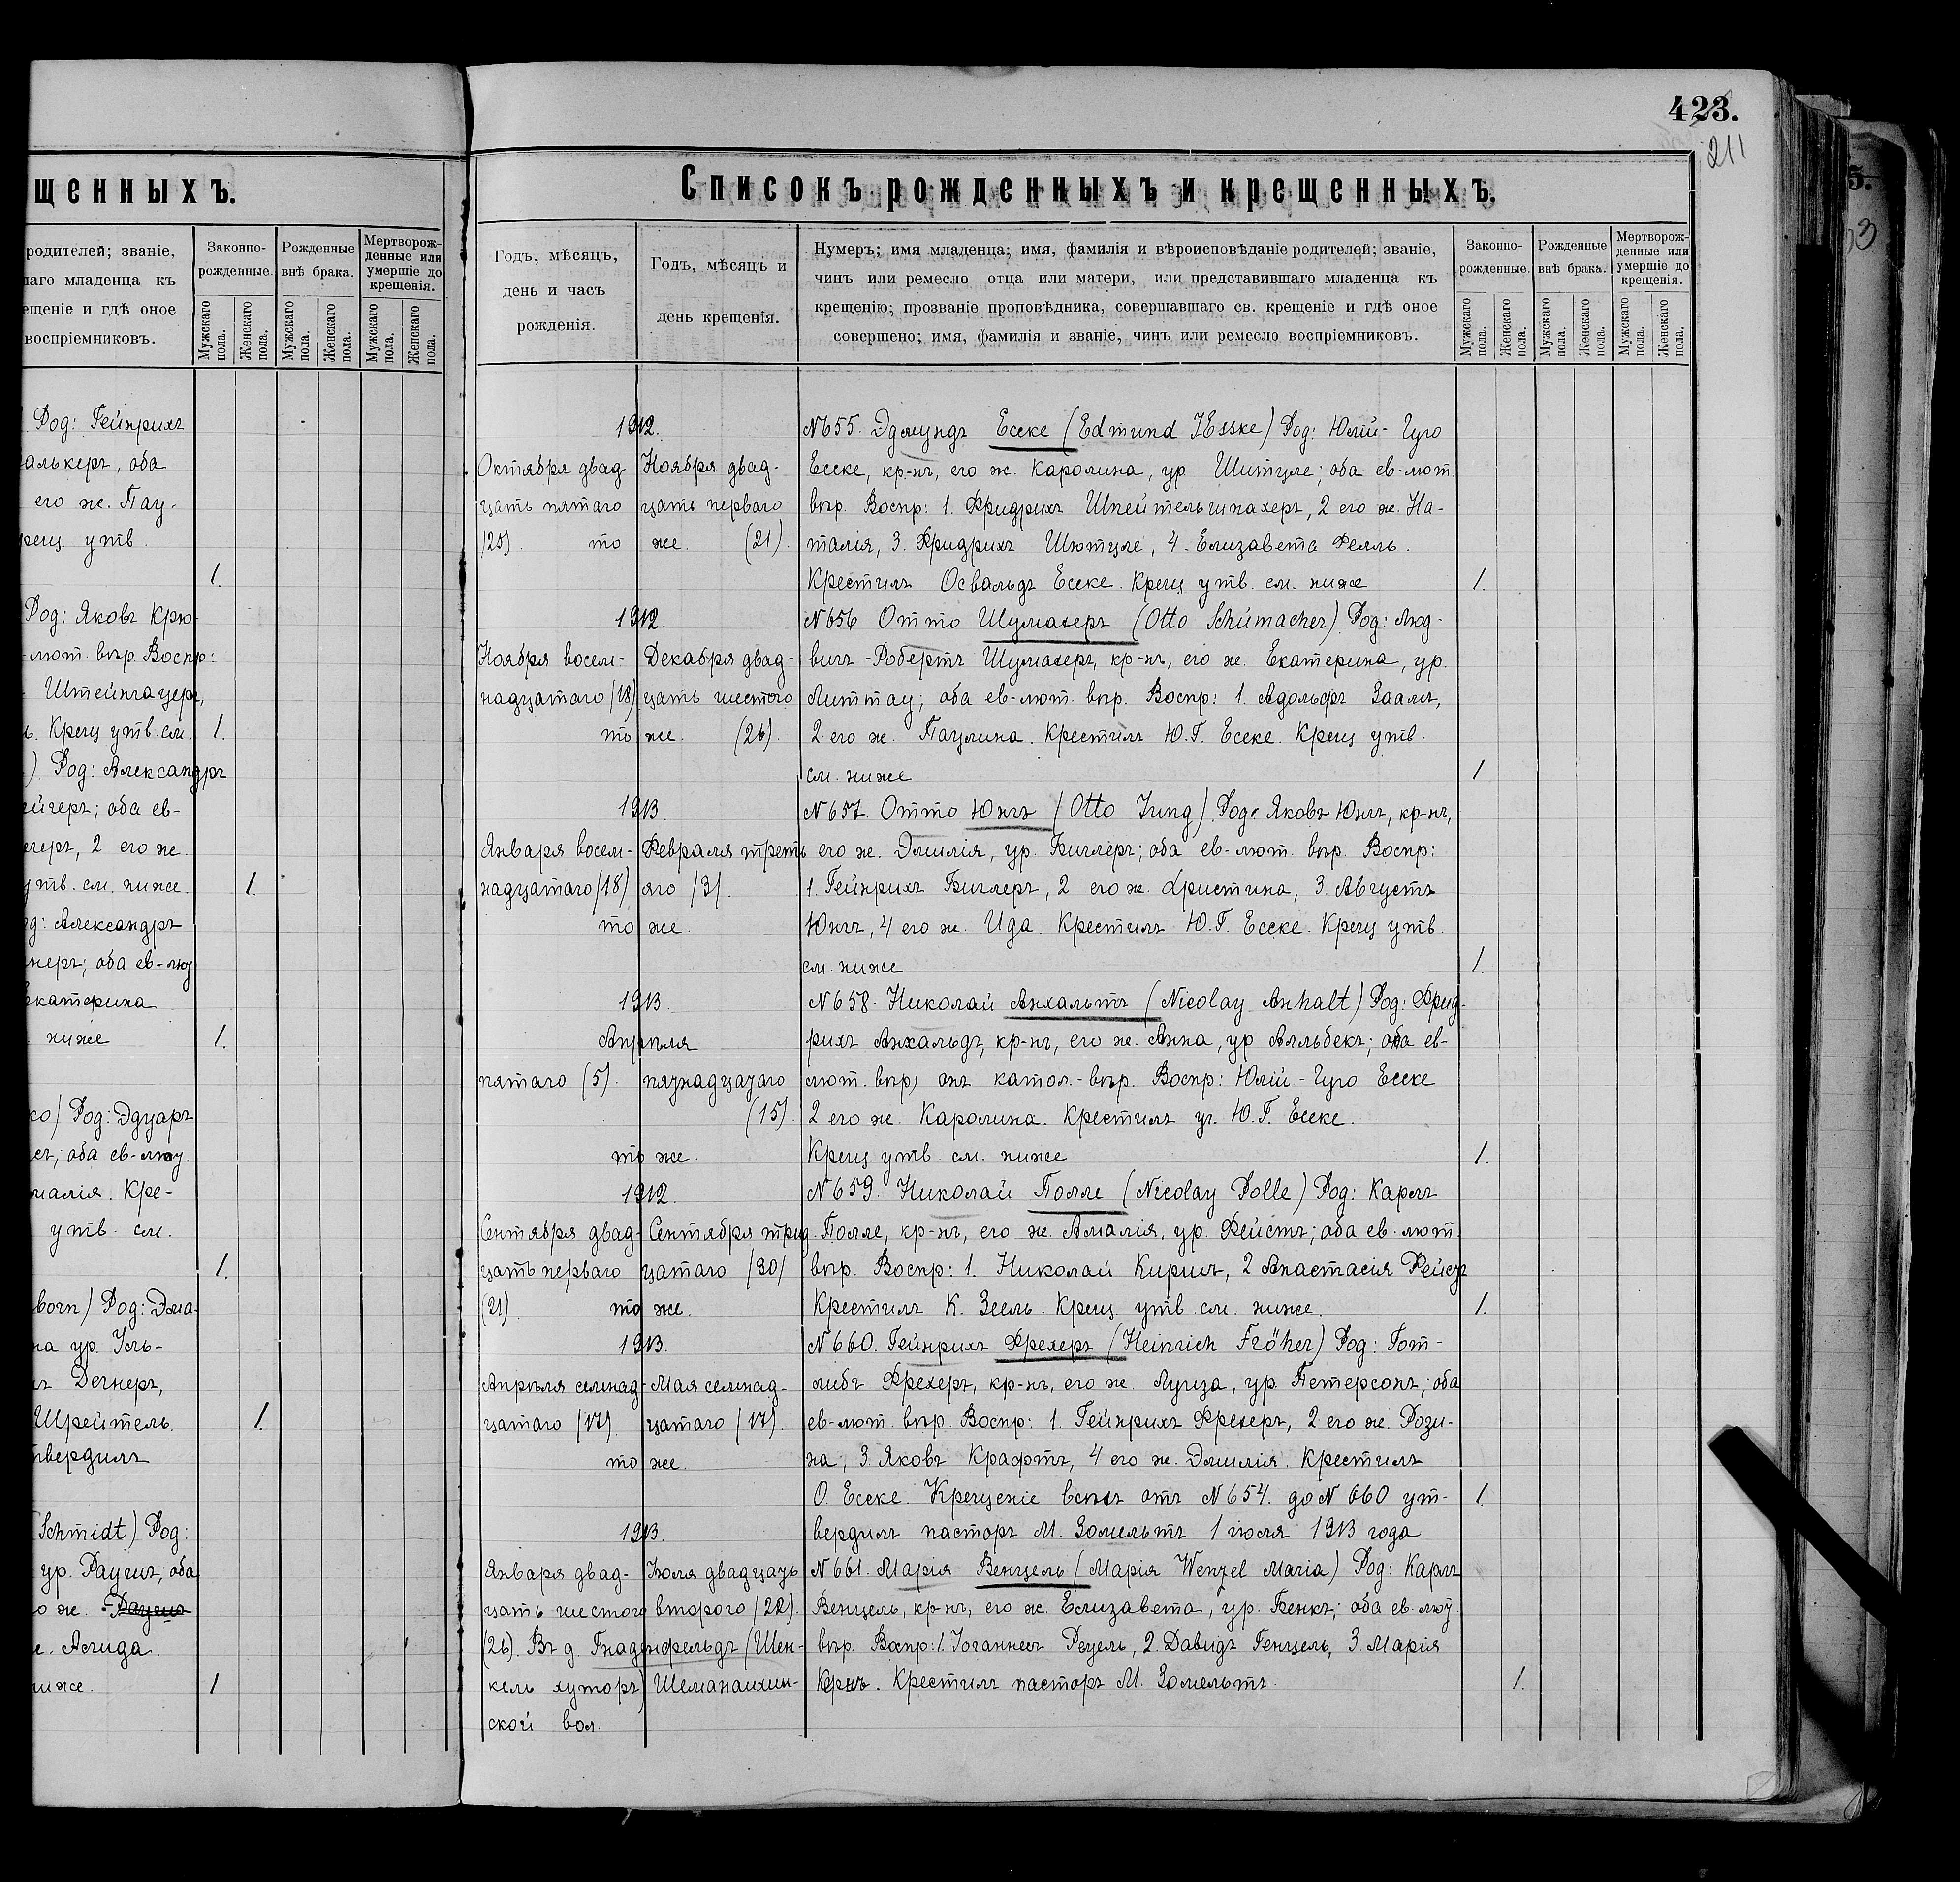 423.
211
щенныхъ.
родителей; званіе,
шаго младенца къ
ещеніе и гдѣ оное
воспріемниковъ.
Законно-
рожденные.
Рожденные
внѣ брака.
Мертворож-
денные или
умершіе до
крещенія.
Мужскаго пола.
Женскаго пола.
Мужскаго пола.
Женскаго пола.
Мужскаго пола.
Женскаго пола.
Род: Гейнрихъ
алькеръ, оба
его ж. Пау-
рещ. утв.
1.
Род: Яковъ Крю-
-лют. вѣр. Воспр:
Штейнгауеръ,
ь. Крещ утв. см. 1.
) Род: Александръ
ейгеръ; оба ев-
геръ, 2 его ж.
утв. см. ниже. 1.
од: Александръ
неръ; оба ев-лют
Екатерина
ниже 1.
ко) Род: Эдуаръ
ег; оба ев-лют.
малія. Кре-
утв. см.
1.
born) Род: Эма-
на ур. Гель-
ъ Дегнеръ,
Шрейтель. 1.
твердилъ
Schmidt) Род:
ур. Раушъ; оба
о ж. Раушъ
е. Агида.
ниже. 1
Списокъ рожденныхъ и крещенныхъ.
Годъ, мѣсяцъ,
день и часъ
рожденія.
Годъ, мѣсяцъ и
день крещенія.
Нумеръ; имя младенца; имя, фамилія и вѣроисповѣданіе родителей; званіе,
чинъ или ремесло отца или матери, или представившаго младенца къ
крещенію; прозваніе проповѣдника, совершавшаго св. крещеніе и гдѣ оное
совершено; имя, фамилія и званіе, чинъ или ремесло воспріемниковъ.
Законно-
рожденные.
Рожденные
внѣ брака.
Мертворож-
денные или
умершіе до
крещенія.
Мужскаго пола.
Женскаго пола.
Мужскаго пола.
Женскаго пола.
Мужскаго пола.
Женскаго пола.
1912. №655. Эдмундъ Есске (Edmund JEsske) Род: Юлій-Гуго
Октября двад- Ноября двад- Есске, кр-нъ, его ж. Каролина, ур. Шитуле; оба ев-лют.
цать пятаго цать перваго вѣр. Воспр: 1. Фридрихъ Шпейтельшпахеръ, 2 его ж. На-
(25). то же. (21). талія, 3. Фридрихъ Шютуле, 4. Елизавета Фелль.
Крестилъ Освальдъ Есске. Крещ. утв. см. ниже 1.
1912. №656 Отто Шумахеръ (Otto Schúmacher) Род: Люд-
Ноября восем- Декабря двад- вигъ-Робертъ Шумахеръ, кр-нъ, его ж. Екатерина, ур.
надцатаго (18) цать шестого Литтау; оба ев-лют. вѣр. Воспр: 1. Адольфъ Заалъ,
то же. (26). 2 его ж. Паулина. Крестилъ Ю.Г. Есске. Крещ утв.
см. ниже 1
1913. №657. Отто Юнгъ (Otto Jung) Род: Яковъ Юнгъ, кр-нъ,
Января восем- Февраля треть его ж. Эмилія, ур. Биглеръ; оба ев-лют. вѣр. Воспр:
надцатаго (18) яго (3). 1. Гейнрихъ Биглеръ, 2 его ж. Христина, 3. Августъ
то же. Юнгъ, 4 его ж. Ида. Крестилъ Ю.Г. Есске. Крещ утв.
см. ниже 1.
1913. №658. Николай Анхальтъ (Nicolay Anhalt) Род: Фрид-
Апрѣля рихъ Анхальдъ, кр-нъ, его ж. Анна, ур Аллбекъ; оба ев-
пятаго (5). пятнадцатаго лют. вѣр, онъ катол.-вѣр. Воспр: Юлій-Гуго Есске
(15). 2 его ж. Каролина. Крестилъ уч. Ю.Г. Есске.
то же. Крещ. утв. см. ниже 1.
1912. №659. Николай Полле (Nicolay Polle) Род: Карлъ
Сентября двад- Сентября трид- Полле, кр-нъ, его ж. Амалія, ур. Фейстъ; оба ев.-лют.
цать перваго цатаго (30) вѣр. Воспр: 1. Николай Киршъ, 2 Анастасія Фейстъ
(21). то же. Крестилъ К. Зеель. Крещ. утв. см. ниже. 1.
1913. №660. Гейнрихъ Фрехеръ (Heinrich Fröher) Род: Гот-
Апрѣля семнад- Мая семнад- либъ Фрехеръ, кр-нъ, его ж. Луиза, ур. Петерсонъ; оба
цатаго (17). цатаго (17). ев-лют. вѣр. Воспр: 1. Гейнрихъ Фрехеръ, 2 его ж. Рози-
то же. на, 3. Яковъ Крафтъ, 4 его ж. Эмилія. Крестилъ
О. Есске. Крещеніе всѣхъ отъ №654. до №660 ут- 1.
1913. вердилъ пасторъ М. Зомельтъ 1 іюля 1913 года
Января двад- Іюля двадцать №661. Марія Венцель (Марія Wenzel Maria) Род: Карлъ
цать шестого второго (22). Венцель, кр-нъ, его ж. Елизавета, ур. Бенкъ; оба ев. лют.
(26). Въ д. Гнаденфельдъ (Шен- вѣр. Воспр: 1. Іоганнесъ Рецель, 2. Давидъ Генцель, 3. Марія
кель хуторъ) Шеманаихин- Кернъ. Крестилъ пасторъ М. Зомельтъ. 1.
ской вол.